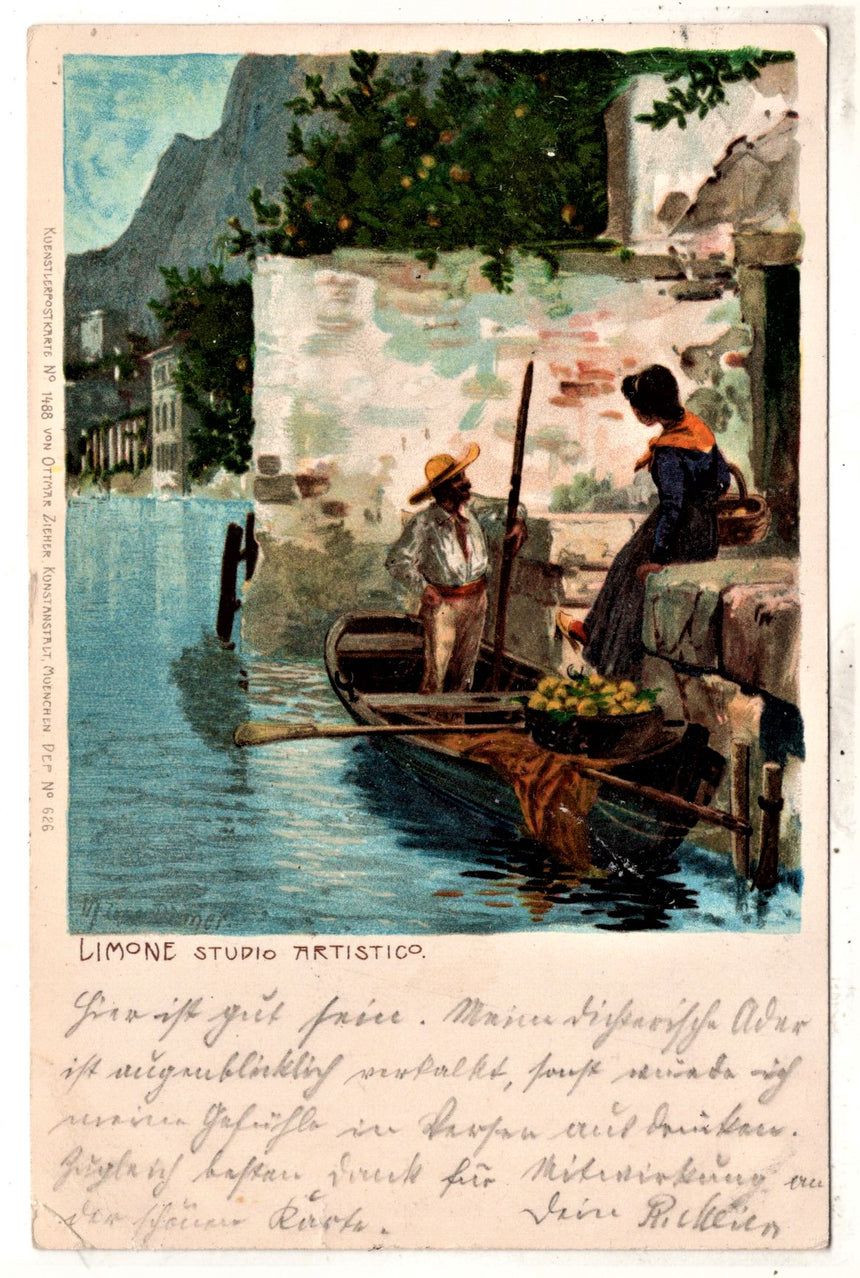 KUENSTLERPOSTKARTE Nº 1488 VON OTTMAR ZIEHER, KUNSTANSTALT, MUENCHEN. DEP Nº 626
LIMONE STUDIO ARTISTICO.
Hier ist gut sein. Meine dichterische Ader
ist augenblicklich verkalkt, sonst würde ich
meine Gefühle in Versen ausdrücken.
Zugleich besten Dank für Mitwirkung an
der schönen Karte. Dein R.